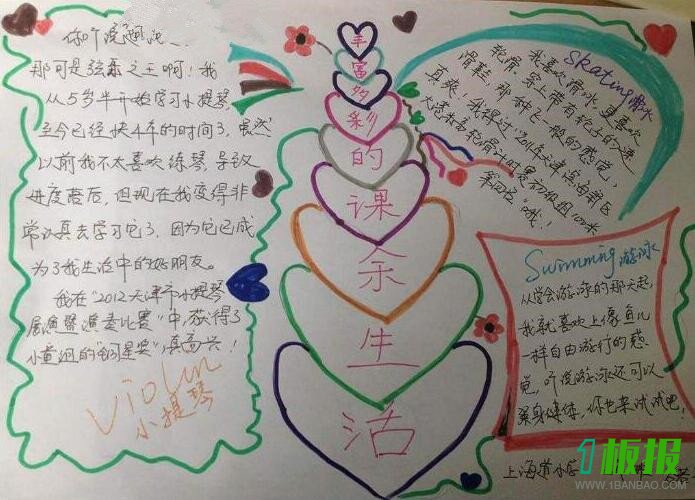 丰富多彩的课余生活
那可是弦乐之王啊！我
从5岁半开始学习小提琴
至今已经快4年的时间了，虽然
以前我不太喜欢练琴，导致
进度落后，但现在我变得非
常认真去学习它了，因为它已成
为了我生活中的好朋友。
我在"2012天津市小提琴
展演暨演奏比赛"中，获得了
小童组的"
奖"真高兴！
Violin
小提琴
Skating 滑冰
我喜欢滑冰，更喜欢
轮滑，穿上带有轮子的速
滑鞋，那种飞一般的感觉，
真爽，我得过"2011年天津滨海新区
轮滑计时赛初级组100米
第四名"哦！
Swimming 游泳
从学会游泳的那天起，
我就喜欢上像鱼儿
一样自由游行的感
觉，听说游泳还可以
强身健体，你也来试试吧！
上海道小学
1板报
WWW.1BANBAO.COM